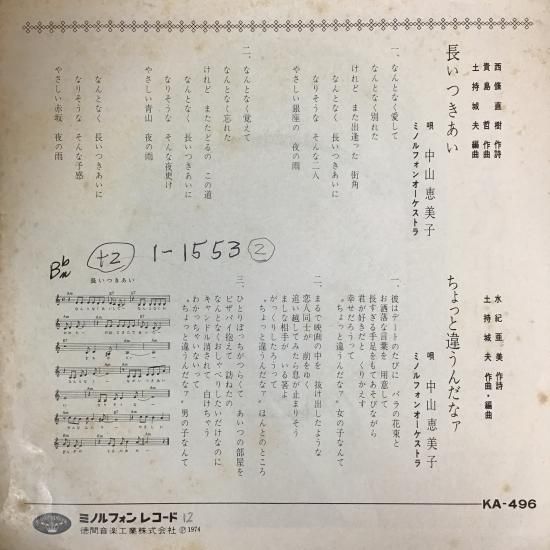 長いつきあい
西條直樹 作詩
貴島哲 作曲
土持城夫 編曲
唄 中山恵美子
ミノルフォンオーケストラ
一、なんとなく愛して
なんとなく別れた
けれど また出逢った 街角
なんとなく 長いつきあいに
なりそうな そんな二人
やさしい銀座の 夜の雨
二、なんとなく覚えて
なんとなく忘れた
けれど またたどるの この道
なんとなく 長いつきあいに
なりそうな そんな夜更け
やさしい青山 夜の雨
なんとなく 長いつきあいに
なりそうな そんな予感
やさしい赤坂 夜の雨
1-1553 ②
+2
B♭m
ちょっと違うんだなァ
水紀亜美 作詩
土持城夫 作曲・編曲
唄 中山恵美子
ミノルフォンオーケストラ
一、彼はデートのたびに バラの花束と
お洒落な言葉を 用意して
長すぎる手足をもてあそびながら
君が好きだと くりかえす
幸せだろうって
"ちょっと違うんだなァ" 女の子なんて
二、まるで映画の中を 抜け出したような
恋人同士が 前をゆく
追い越してみたら息が止まりそう
ましな相手が いる筈よ
がっくりしたろうって
"ちょっと違うんだなァ" ほんとのところ
三、ひとりぼっちがつらくて あいつの部屋を
ピザパイ抱えて 訪ねたの
なんとなくおしゃべりしたいだけなのに
キャンドル消されて 白けちゃう
わかっちゃいないって
"ちょっと違うんだなァ" 男の子なんて
長いつきあい
KA-496
ミノルフォンレコード 12
徳間音楽工業株式会社 Ⓟ1974